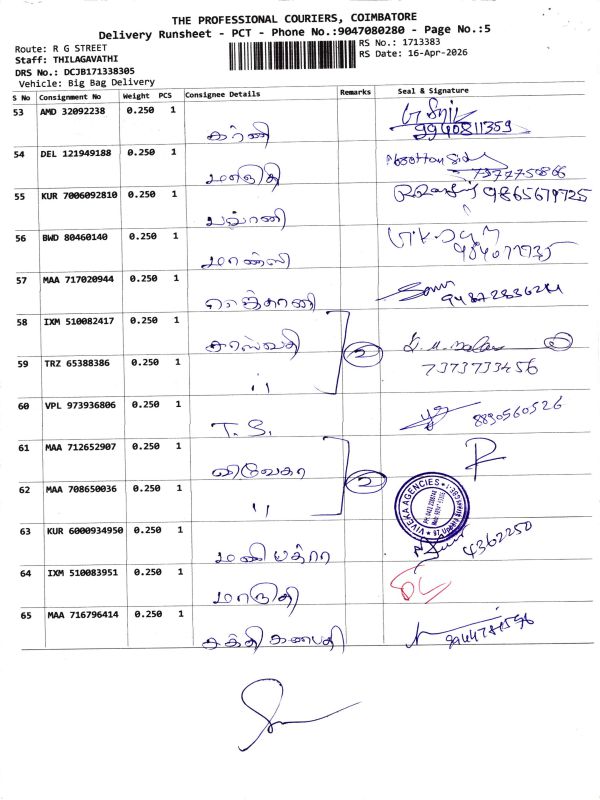 THE PROFESSIONAL COURIERS, COIMBATORE
Delivery Runsheet - PCT - Phone No.:9047080280 - Page No.:5
Route: R G STREET
RS No.: 1713383
Staff: THILAGAVATHI
RS Date: 16-Apr-2026
DRS No.: DCJB171338305
Vehicle: Big Bag Delivery
S No Consignment No Weight PCS Consignee Details Remarks Seal & Signature
53 AMD 32092238 0.250 1
கர்ணி 9940811359
54 DEL 121949188 0.250 1
மாருதி 7377758866
55 KUR 7006092810 0.250 1 9865679725
பவானி
56 BWD 80460140 0.250 1
மான்ஸி
57 MAA 717020944 0.250 1
58 IXM 510082417 0.250 1
சரஸ்வதி 2
59 TRZ 65388386 0.250 1 7373733456
"
60 VPL 973936806 0.250 1 8890560526
T. S.
61 MAA 712652907 0.250 1
விவேகா 2
62 MAA 708650036 0.250 1
"
VIVEKA AGENCIES
63 KUR 6000934950 0.250 1 4362250
மணி பத்ரா
64 IXM 510083951 0.250 1
மாருதி
65 MAA 716796414 0.250 1
சக்தி கணபதி